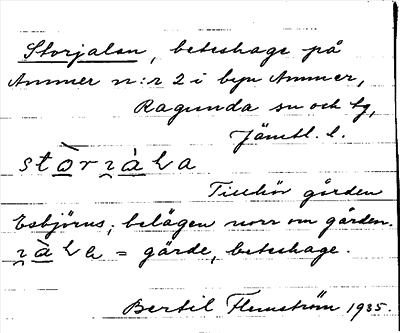 Storjalan, beteshage på
Ammer n:r 2 i byn Ammer,
Ragunda sn och tg,
Jämtl. l.
Tillhör gården
Esbjörns; belägen norr om gården.
= gärde, beteshage.
Bertil Flemström 1935.